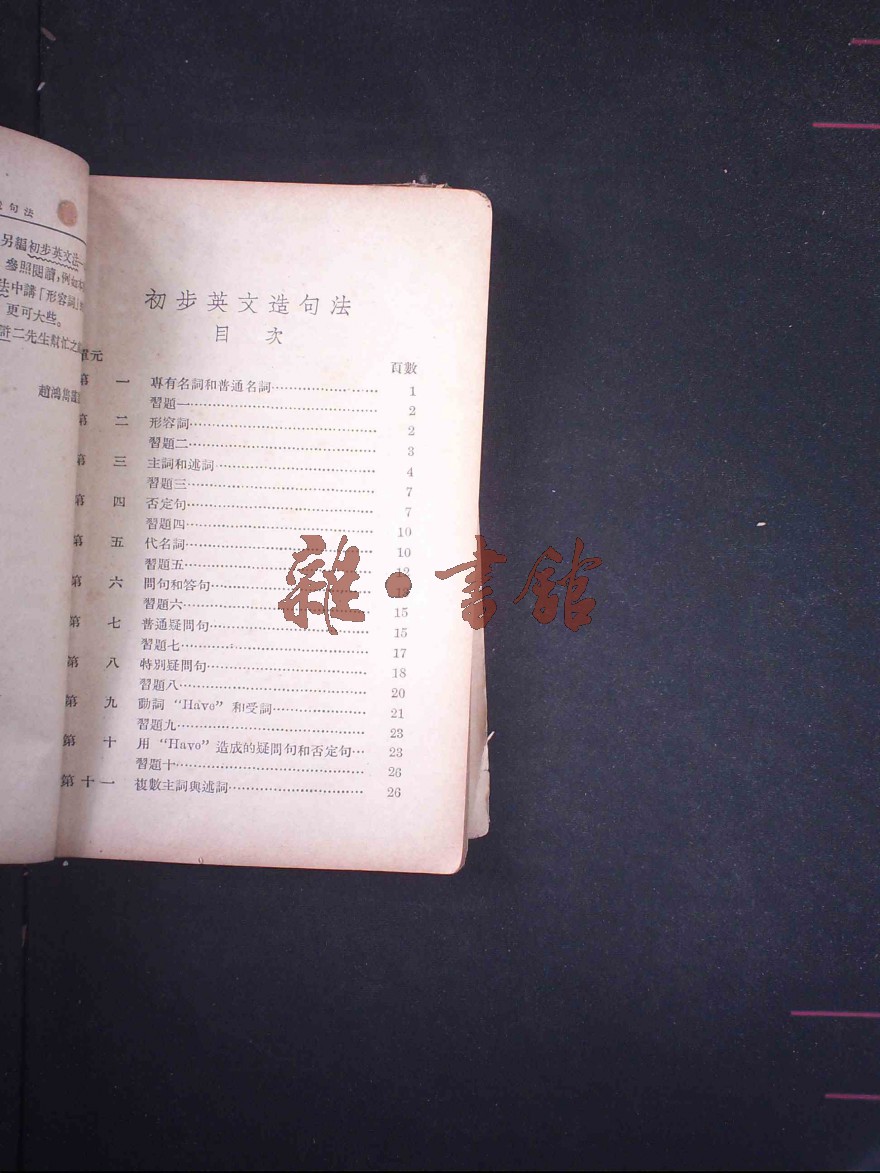 造句法
另編初步英文法一
參照閱讀,例如本
法中講「形容詞」
更可大些。
許二先生幫忙之
趙鴻雋
初步英文造句法
目 次
單元 頁數
第 一 專有名詞和普通名詞…………………… 1
習題一…………………… 2
第 二 形容詞…………………… 2
習題二…………………… 3
第 三 主詞和述詞…………………… 4
習題三…………………… 7
第 四 否定句…………………… 7
習題四…………………… 10
第 五 代名詞…………………… 10
習題五…………………… 12
第 六 問句和答句…………………… 13
習題六…………………… 15
第 七 普通疑問句…………………… 15
習題七…………………… 17
第 八 特別疑問句…………………… 18
習題八…………………… 20
第 九 動詞 “Have” 和受詞…………………… 21
習題九…………………… 23
第 十 用 “Have” 造成的疑問句和否定句… 23
習題十…………………… 26
第十一 複數主詞與述詞…………………… 26
雜·書館